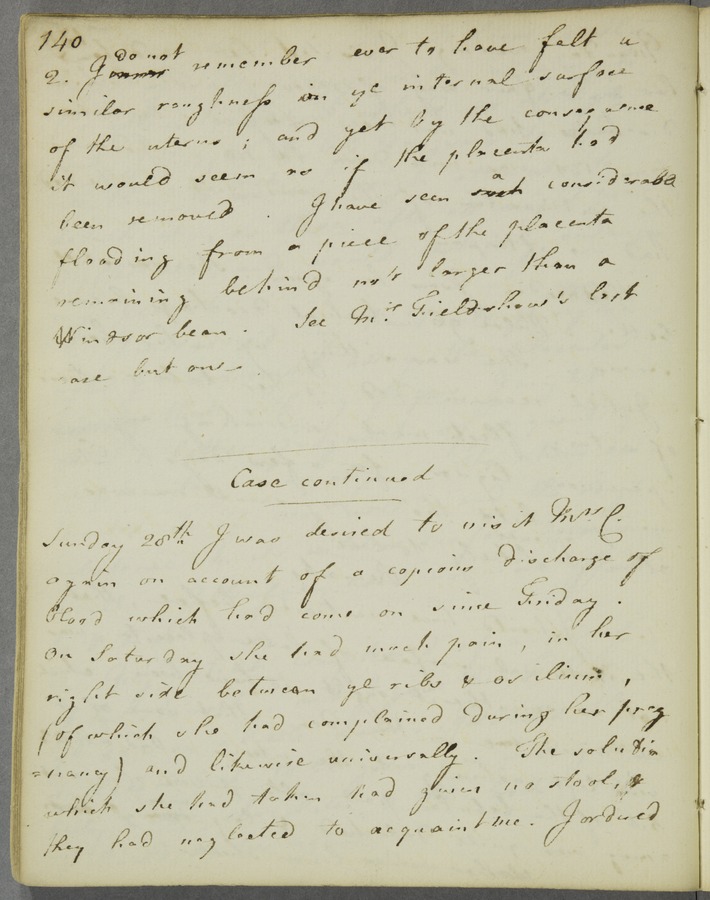 140
2. I do not remember ever to have felt a
similar roughness in ye internal surface
of the uterus; and yet by the consequence
it would seem as if the placenta had
been removed. I have seen a considerable
flooding from a piece of the placenta
remaining behind not larger than a
Windsor bean. See Mrs Fieldhouse's last
case but one.
Case continued
Sunday 28th I was desired to visit Mrs C.
again on account of a copious discharge of
blood which had come on since Friday.
On Saturday she had much pain, in her
right side between ye ribs & os ilium,
(of which she had complained during her preg
=nancy) and likewise universally. The solution
which she had taken had given no stool, &
they had neglected to acquaint me. I ordered